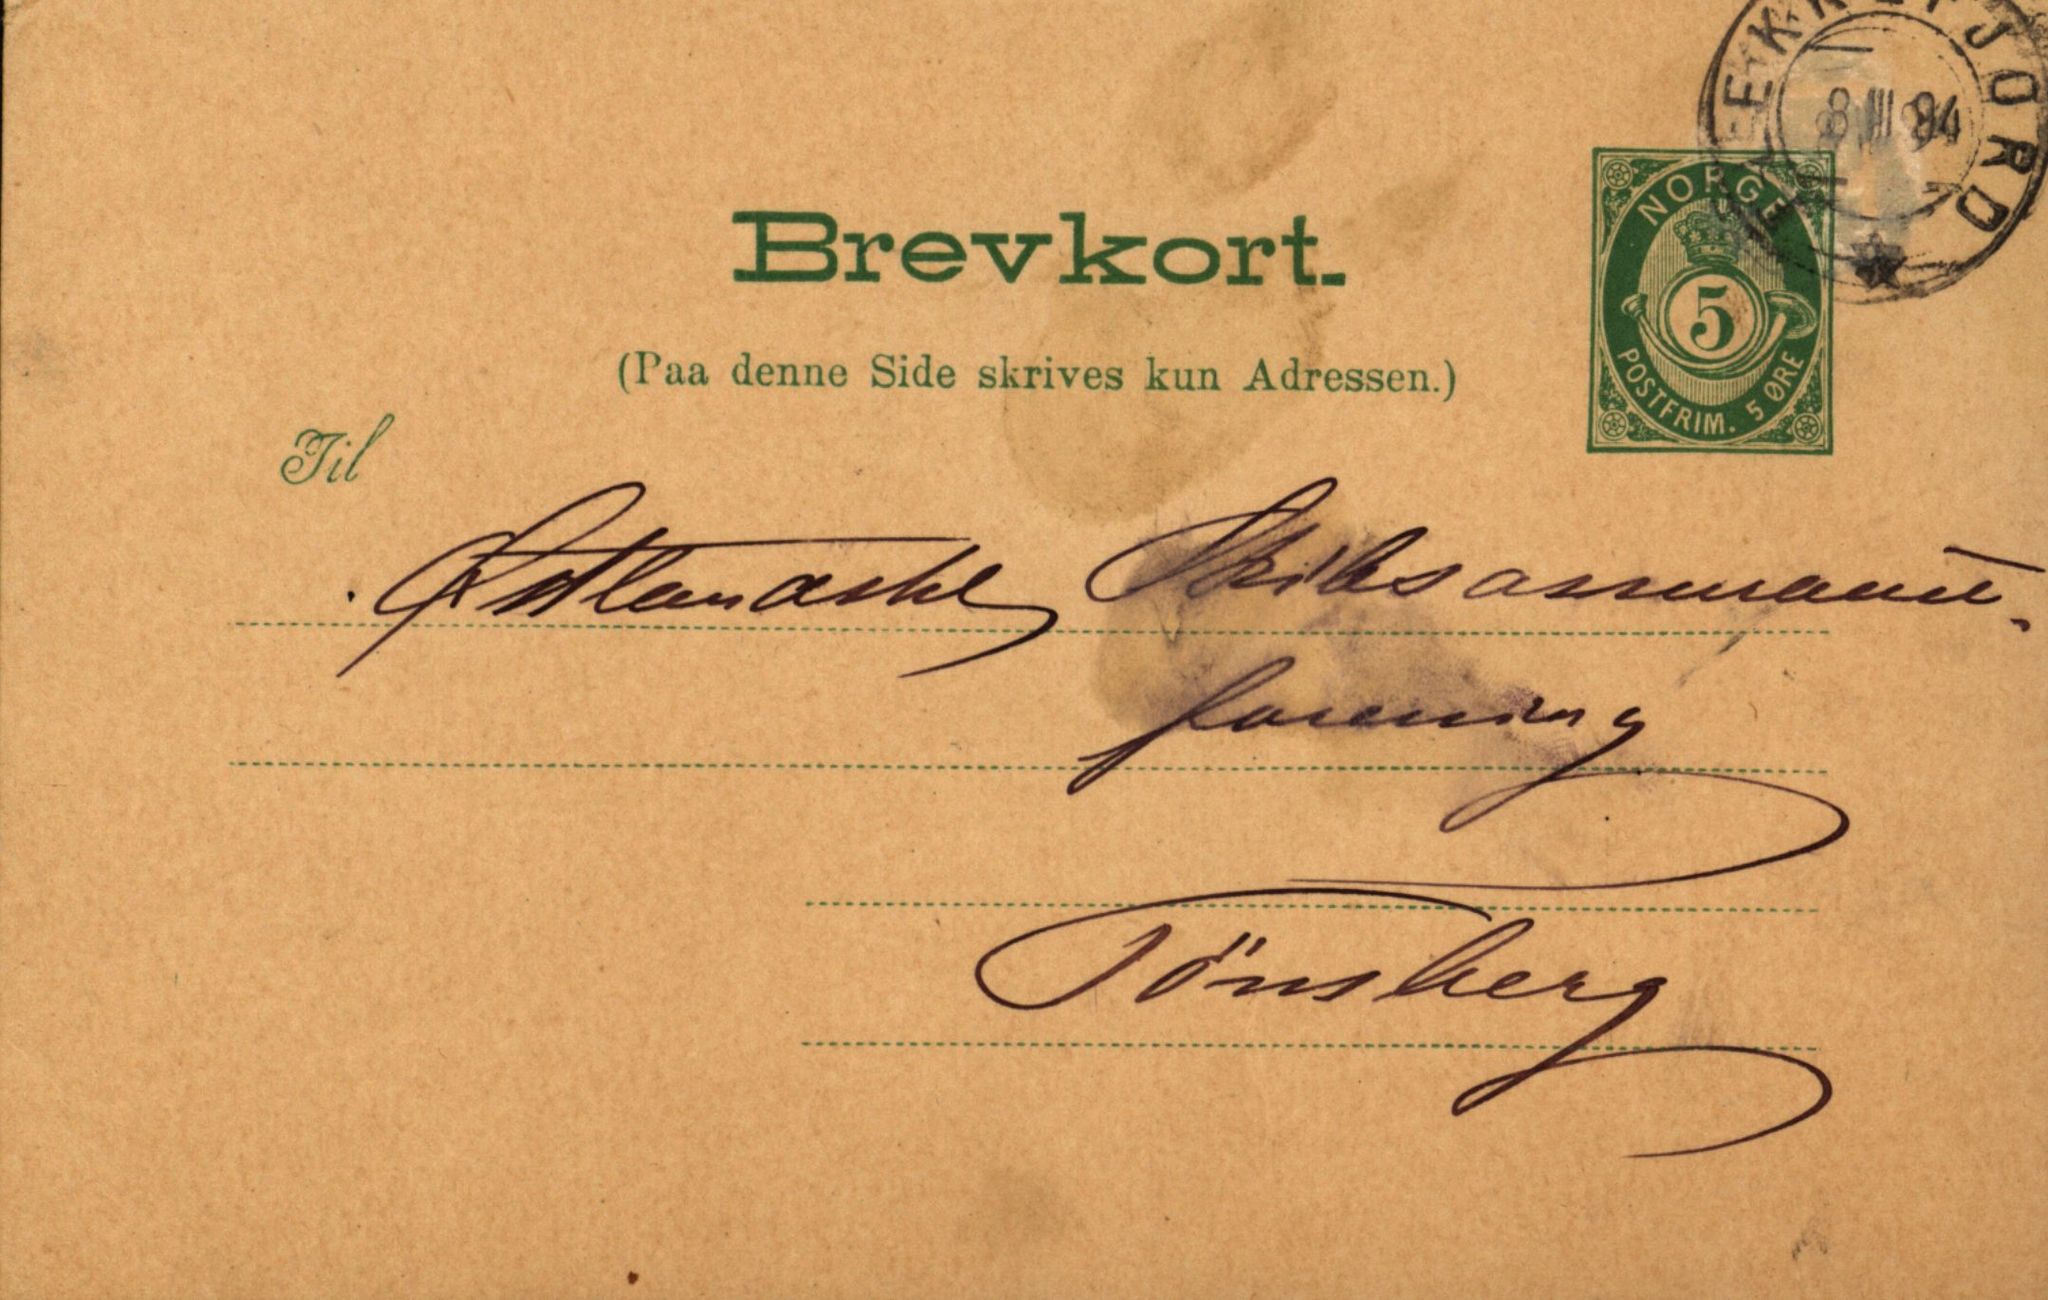 EKKEFJORD
8 III 94
NORGE
5
POSTFRIM. 5 ØRE
Brevkort.
(Paa denne Side skrives kun Adressen.)
Til
Skibsassurance-
forening
Tönsberg